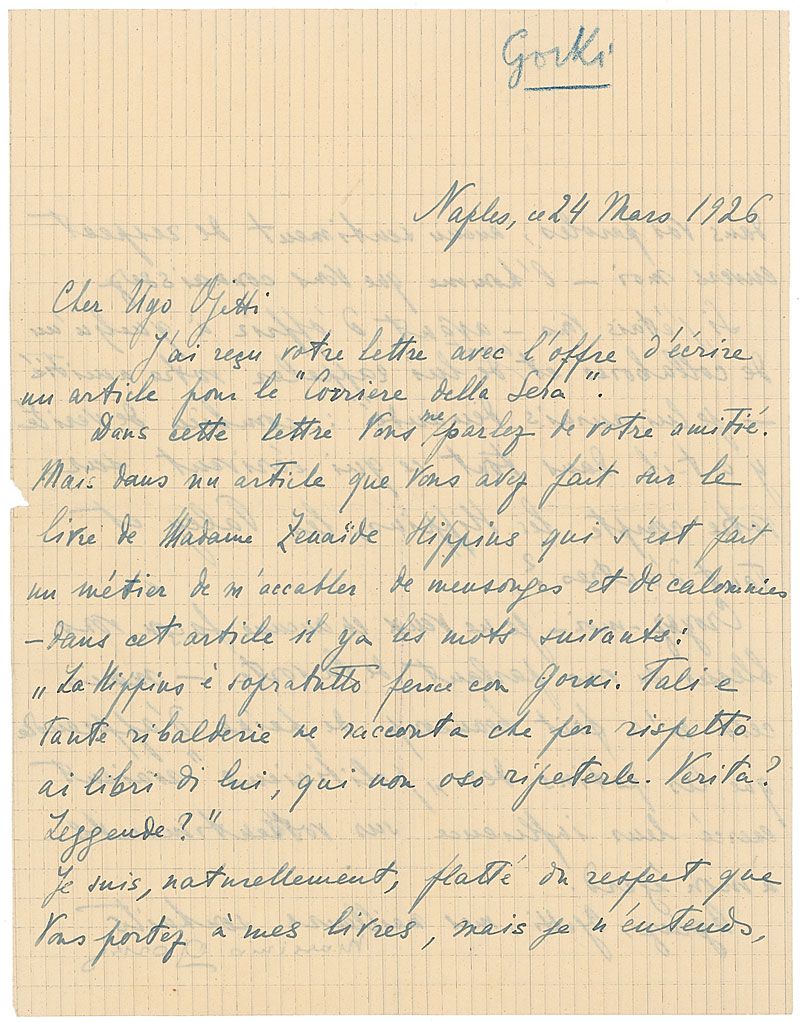 Gorki
Naples, ce 24 Mars 1926
Cher Ugo Ojetti
J'ai reçu votre lettre avec l'offre d'écrire
un article pour le "Corriere della Sera".
Dans cette lettre Vous me parlez de votre amitié.
Mais dans un article que Vous avez fait sur le
livre de Madame Zenaïde Hippius qui s'est fait
un métier de m'accabler de mensonges et de calomnies
– dans cet article il y a les mots suivants:
„La Hippius è sopratutto feroce con Gorki. Tali e
tante ribalderie ne racconta che per rispetto
ai libri di lui, qui non oso ripeterle. Verità?
Leggende?"
Je suis, naturellement, flatté du respect que
Vous portez à mes livres, mais je n'entends,